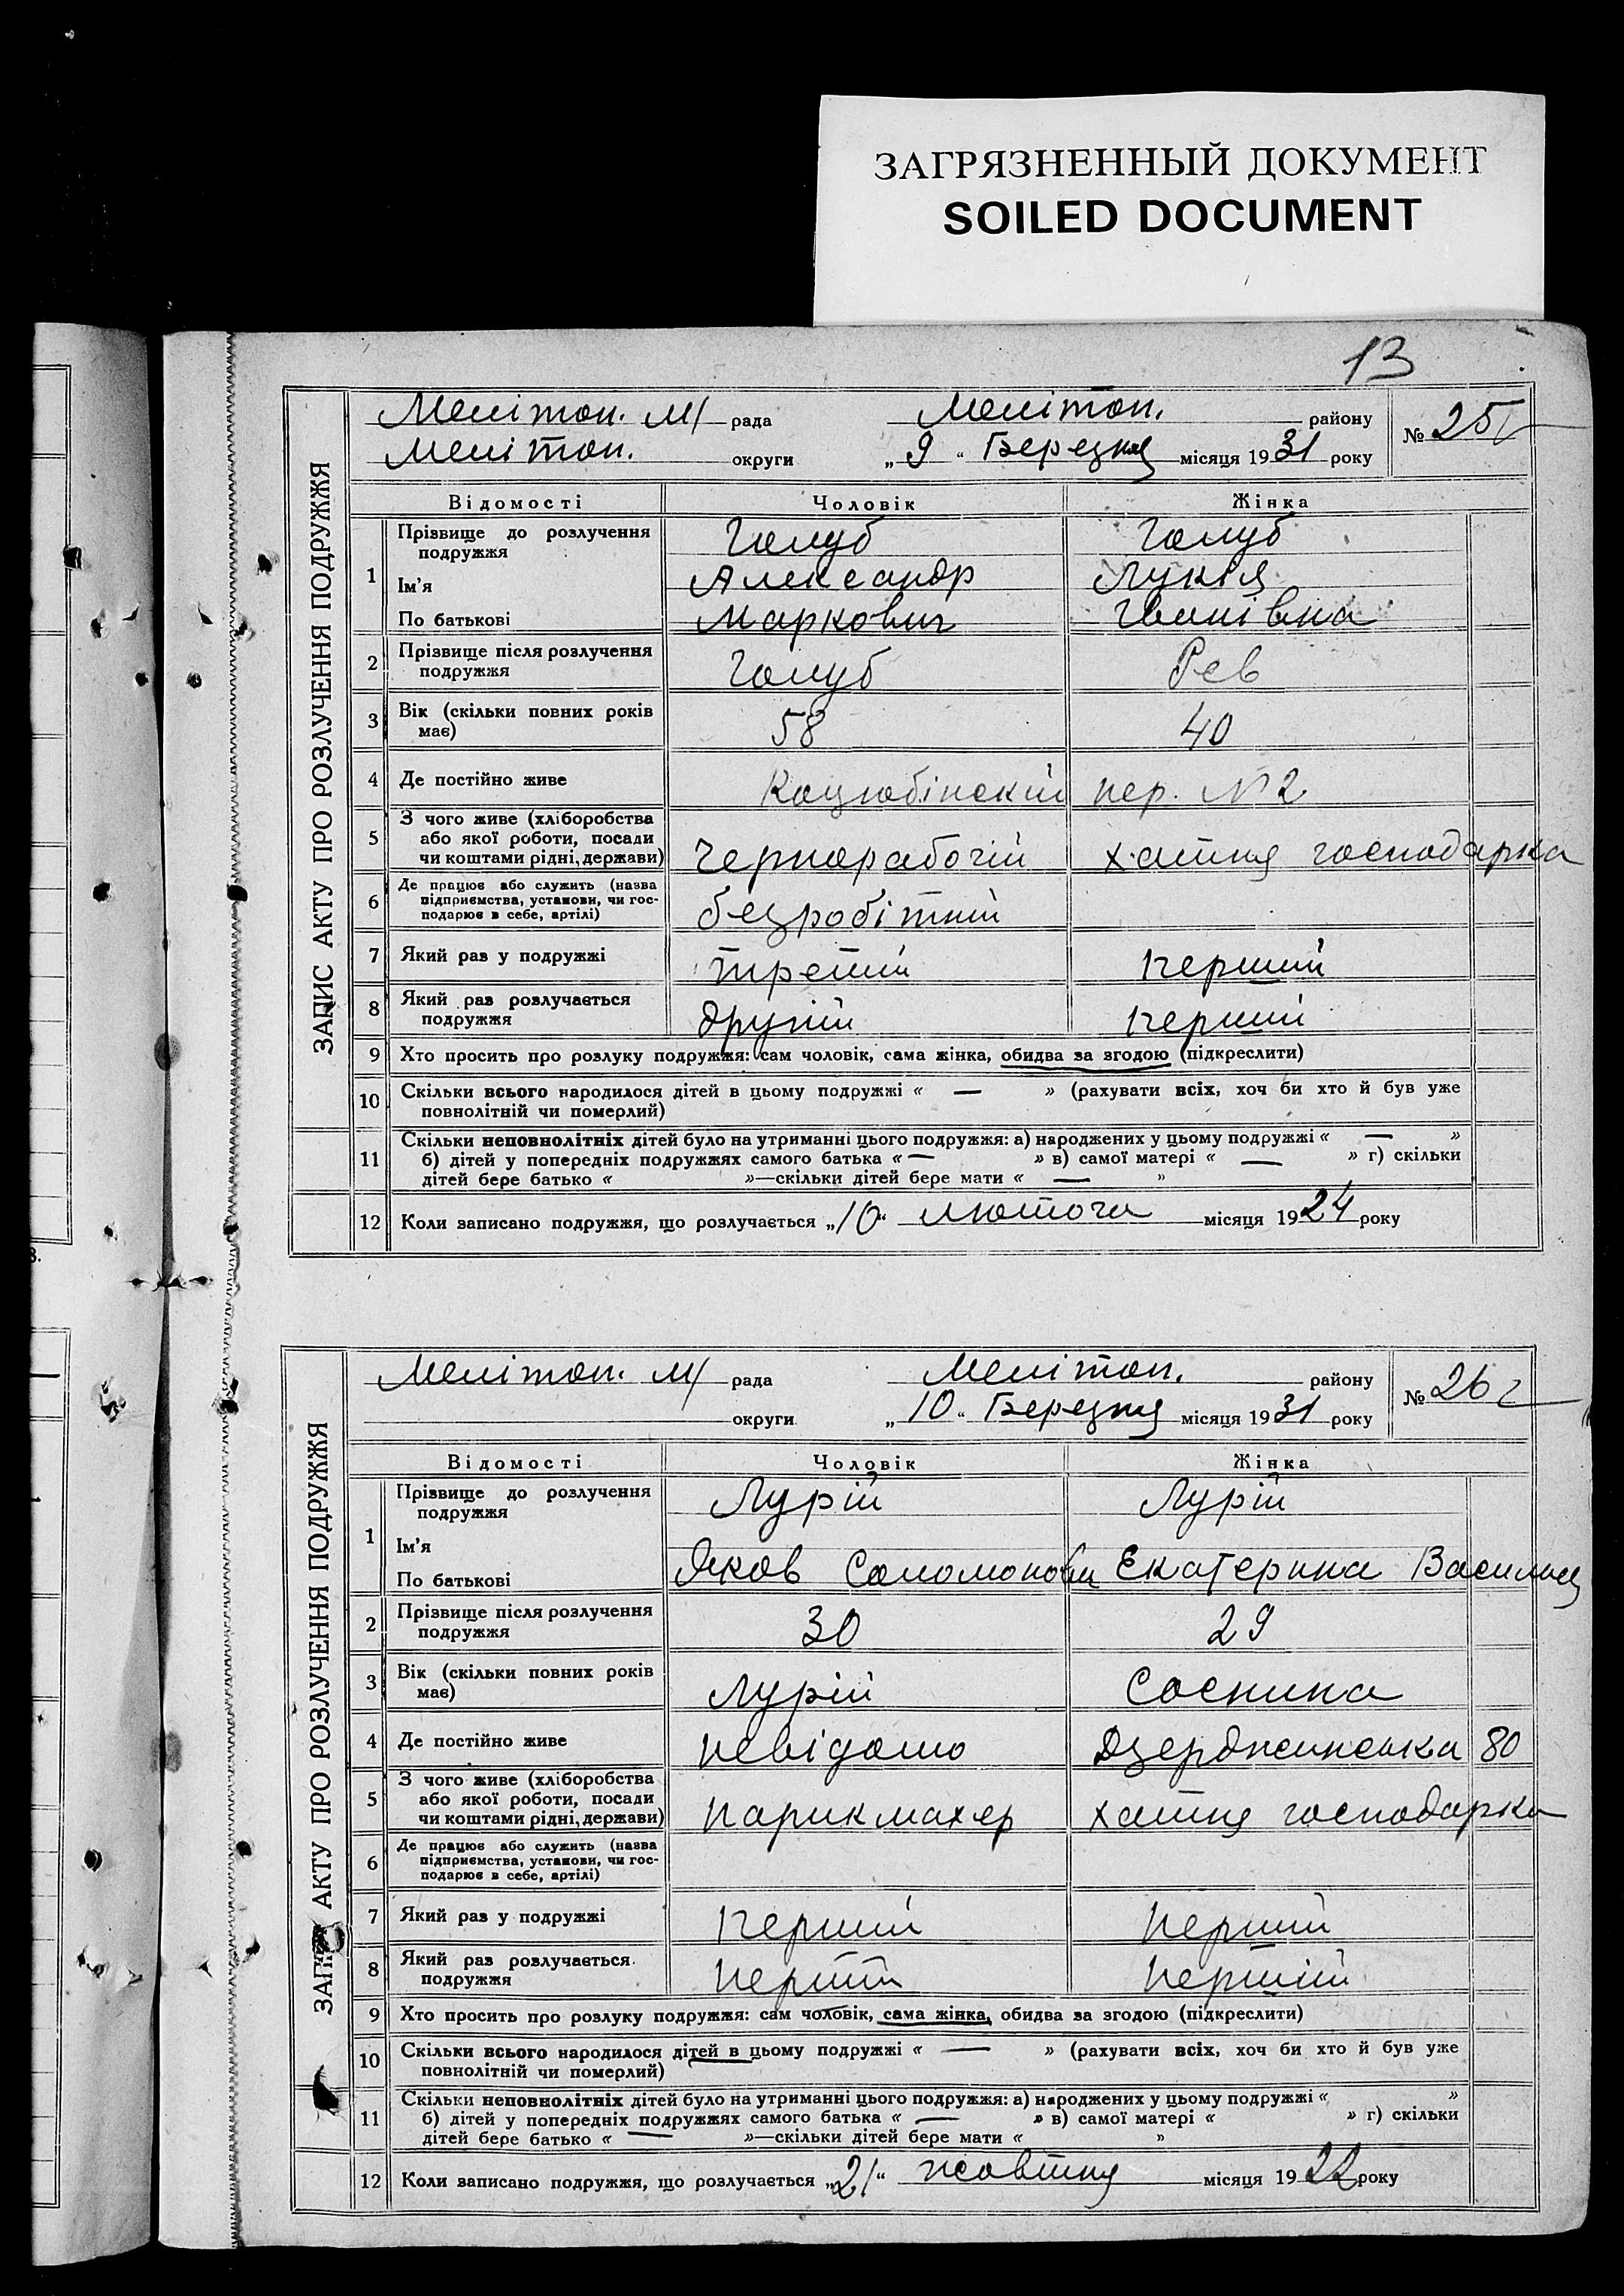 ЗАГРЯЗНЕННЫЙ ДОКУМЕНТ
SOILED DOCUMENT
13
ЗАПИС АКТУ ПРО РОЗЛУЧЕННЯ ПОДРУЖЖЯ
Мелітоп. м/ рада Мелітоп. району № 25
Мелітоп. округи „9“ Березня місяця 1931 року
Відомості Чоловік Жінка
1 Прізвище до розлучення подружжя Голуб Голуб
Ім'я Александр Лукія
По батькові Маркович Іванівна
2 Прізвище після розлучення подружжя Голуб Рев
3 Вік (скільки повних років має) 58 40
4 Де постійно живе Коцюбінский пер. №2
5 З чого живе (хліборобства або якої роботи, посади чи коштами рідні, держави) Чернорабочій хатня господарка
6 Де працює або служить (назва підприємства, установи, чи господарює в себе, артілі) безробітний
7 Який раз у подружжі третий перший
8 Який раз розлучається подружжя другий перший
9 Хто просить про розлуку подружжя: сам чоловік, сама жінка, обидва за згодою (підкреслити)
10 Скільки всього народилося дітей в цьому подружжі « — » (рахувати всіх, хоч би хто й був уже
повнолітній чи померлий)
11 Скільки неповнолітніх дітей було на утриманні цього подружжя: а) народжених у цьому подружжі « — »
б) дітей у попередніх подружжях самого батька « — » в) самої матері « — » г) скільки
дітей бере батько « »—скільки дітей бере мати « — »
12 Коли записано подружжя, що розлучається „10“ лютого місяця 1924 року
ЗАПИС АКТУ ПРО РОЗЛУЧЕННЯ ПОДРУЖЖЯ
Мелітоп. м/ рада Мелітоп. району № 26
округи „10“ Березня місяця 1931 року
Відомості Чоловік Жінка
1 Прізвище до розлучення подружжя Лурій Лурій
Ім'я
По батькові Яков Соломонови Екатерина Васильев
2 Прізвище після розлучення подружжя 30 29
3 Вік (скільки повних років має) Лурій Соснина
4 Де постійно живе невідомо Дзержинська 80
5 З чого живе (хліборобства або якої роботи, посади чи коштами рідні, держави) парикмахер хатня господарка
6 Де працює або служить (назва підприємства, установи, чи господарює в себе, артілі)
7 Який раз у подружжі перший перший
8 Який раз розлучається подружжя перший перший
9 Хто просить про розлуку подружжя: сам чоловік, сама жінка, обидва за згодою (підкреслити)
10 Скільки всього народилося дітей в цьому подружжі « — » (рахувати всіх, хоч би хто й був уже
повнолітній чи померлий)
11 Скільки неповнолітніх дітей було на утриманні цього подружжя: а) народжених у цьому подружжі « »
б) дітей у попередніх подружжях самого батька « — » в) самої матері « » г) скільки
дітей бере батько « — »—скільки дітей бере мати « »
12 Коли записано подружжя, що розлучається „21“ жовтня місяця 1922 року